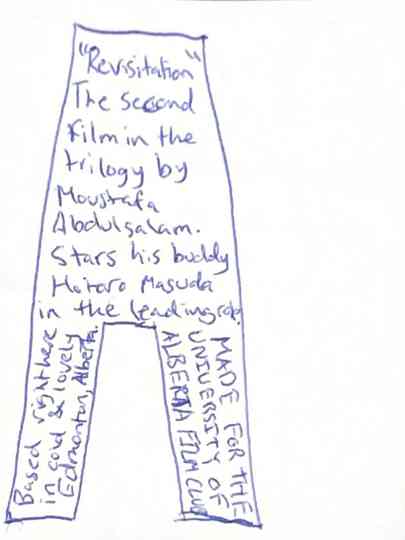 "Revisitation"
The second
film in the
trilogy by
Moustafa
Abdulsalam.
Stars his buddy
Hotaro Masuda
in the leading role.
Based right here
in cold & lovely
Edmonton, Alberta.
MADE FOR THE
UNIVERSITY OF
ALBERTA FILM CLUB